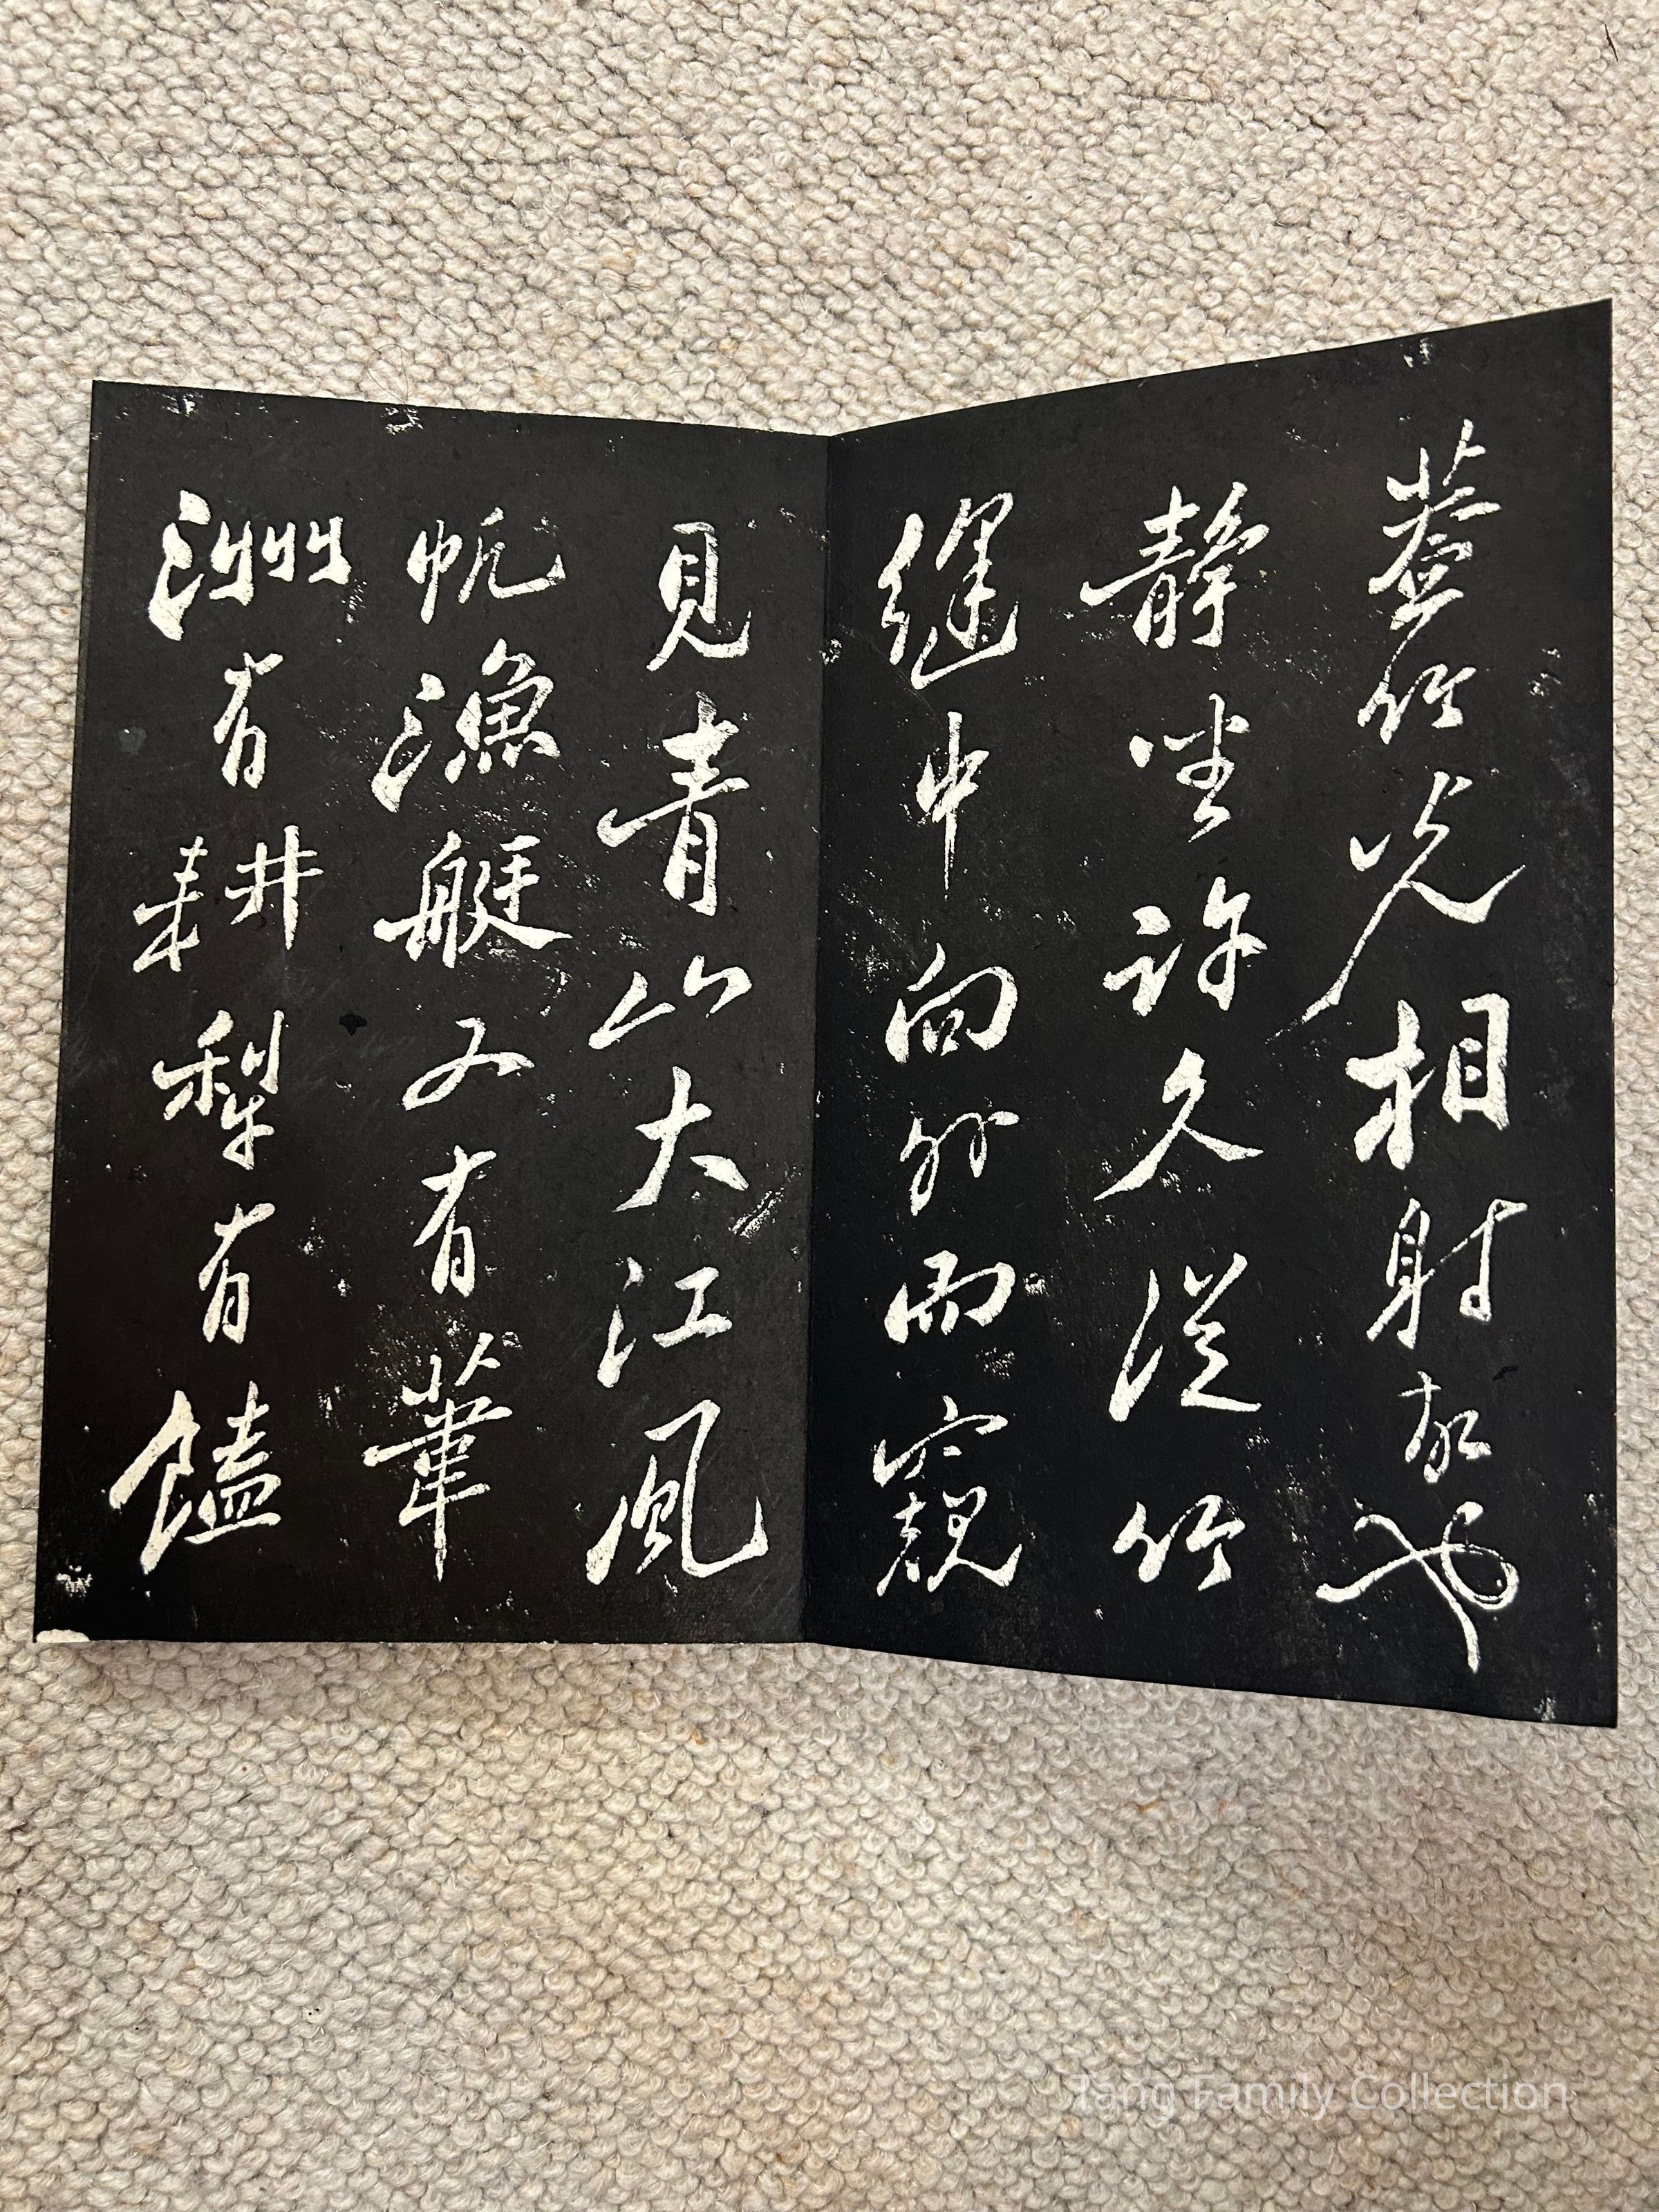 蓋竹光相射故也
靜坐許久從竹
縫中向外而窺
見青山大江風
帆漁艇又有葦
洲有耕犁有饁
Tang Family Collection